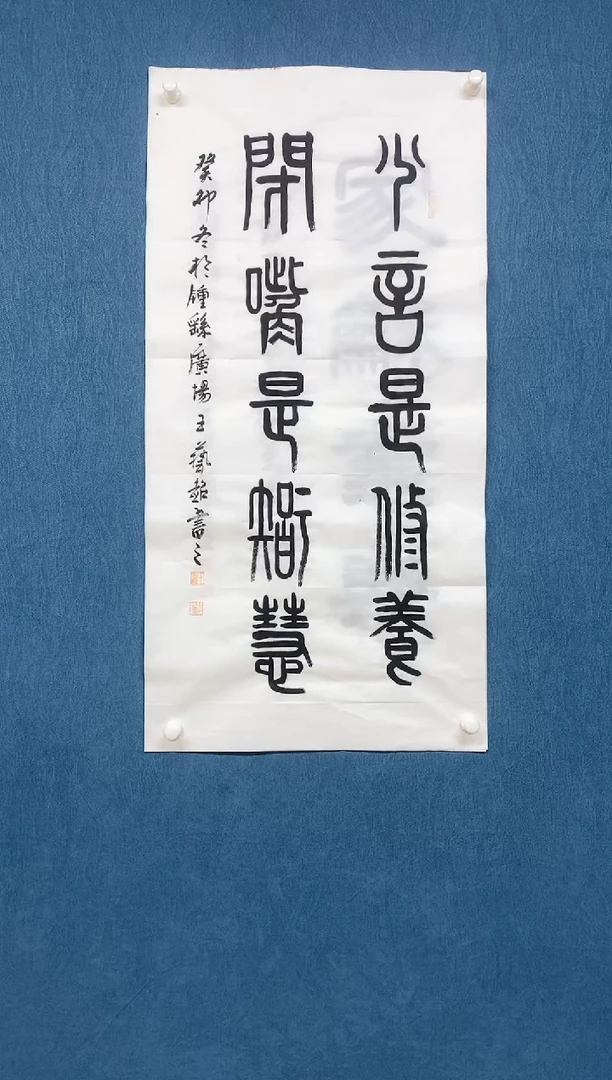 少言是修養
閉嘴是智慧
癸卯冬於鍾繇廣場王藝超書之